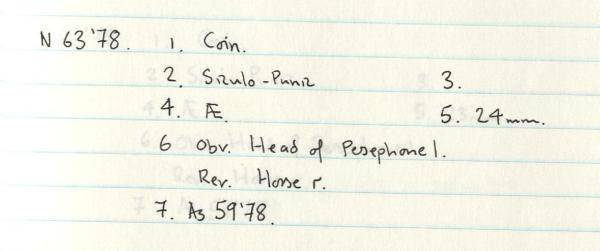 N 63'78. 1. Coin.
2. Siculo-Punic 3.
4. Æ. 5. 24mm.
6 Obv. Head of Persephone l.
Rev. Horse r.
7. As 59'78.